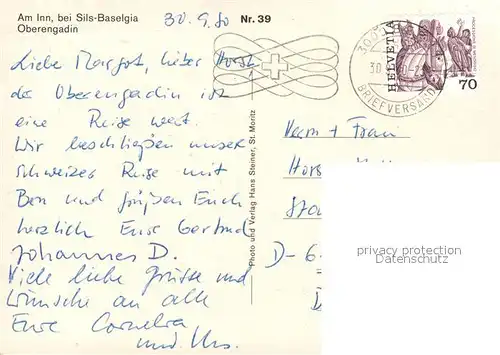 Am Inn, bei Sils-Baselgia
Oberengadin
30.9.80
Nr. 39
Liebe Margot, lieber Horst
das Oberengadin ist
eine Reise wert.
Wir beschließen unser
schweizer Reise mit
Ben und grüßen Euch
herzlich Eure Gertrud
Johannes D.
Viele liebe Grüsse und
Wünsche an alle
Eure Cornelia
und Urs.
Photo und Verlag Hans Steiner, St. Moritz
30
BRIEFVERSAND
HELVETIA
70
Herrn + Frau
Horst
D-6
privacy protection
Datenschutz